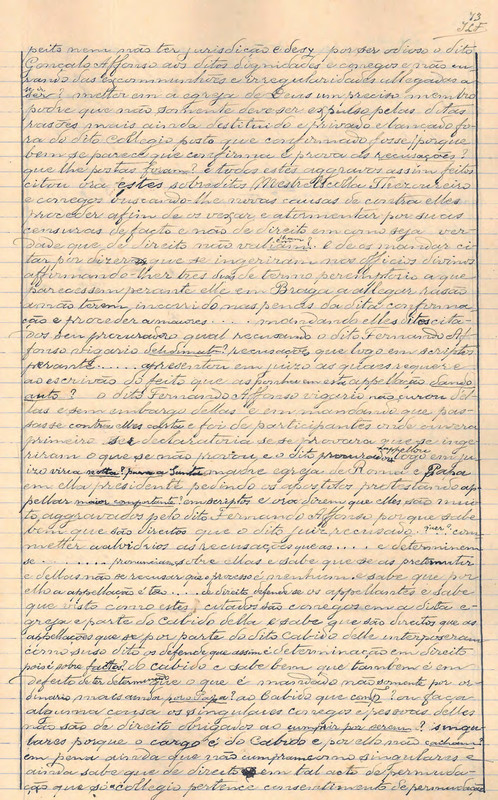 73
728
peito nem não ter jurisdicção e desy por ser odioso o dito
Gonçalo Affonso aos ditos dignidades e conegos e não cu
rando das excommunhões e irregularidades allegadas a
ser? metter em a egreja de Deus um preciso membro
podre que não somente deve ser expulso pelas ditas
rasões mais ainda destituido e privado e lançado fo
ra do dito Collegio posto que confirmado fosse, porque
bem se parece que confirma e prova as recusações?
que lhe postas foram? e todos estes aggravos assim feitos
citou ora estes sobreditos Mestre Escolla Thezoureiro
e conegos buscando-lhe novas causas de contra elles
proceder affim de os vexar e atormentar por suas
censuras de facto e não de direito em como seja ver
dade que de direito não valiam. e de os mandar ci
tar por dizer que se ingeriram nos officios divinos
affirmando-lhes tres dias de termo peremptorio a que
parecessem perante elle em Braga a allegar rasão
a não terem incorrido nas penas da dita confirma
ção e proceder a maiores .... mandando elles ditos cita
dos seu procurador o qual recusando o dito Fernando Af
fonso vigario recusações que logo em scriptos
perante ..... apresentou em juizo as quaes requere
ao escrivão do feito que as ponha em esta appellação dando
auto? o dito Fernando Affonso vigario não curou del
las e sem embargo dellas e em mandando que pas
sasse contra elles carta e foi de participantes onde ouvera
primeiro ser declaratoria se se provara que se inge
riram o que se não provou, e o dito procurador appellou logo em ju
izo viria madre egreja de Roma e Papa
em ella presidente pedindo os apostolos protestando ap
pellar maior comprimento? em scriptos e ora dizem que elles são mui
to aggravados pelo dito Fernando Affonso porque sabe
bem que são direitos que o dito juiz recusado quer? com
metter a alvidrios as recusações que as .... e determinem
se ........ pronunciar sobre ellas e sabe que se as pretermittir
e dellas não se recusar que o processo é nenhum e sabe que por
ello a appellação é tão .... de direito defende se os appellantes e sabe
que visto como estes citados são conegos em a dita e
greja e parte do cabido della e sabe que são direitos que as
appellações que se por parte do dito Cabido delle interposeram
como suso dito os defende que assim é determinação em direito
pois é sobre feittos? do cabido e sabe bem que tambem é em
defeito de ter determinado e o que é mandado não somente por or
dinario mais ainda por o Papa? ao Cabido que ou faça
alguma cousa os singulares conegos e pessoas delles
não são de direito obrigados ao cumprir por serem? singu
lares porque o cargo é do Cabido e por ello não cahem?
em pena ainda que não cumpram como singulares e
ainda sabe que de direito em tal acto de permuda
ção que só collegio pertence consentimento de permudação